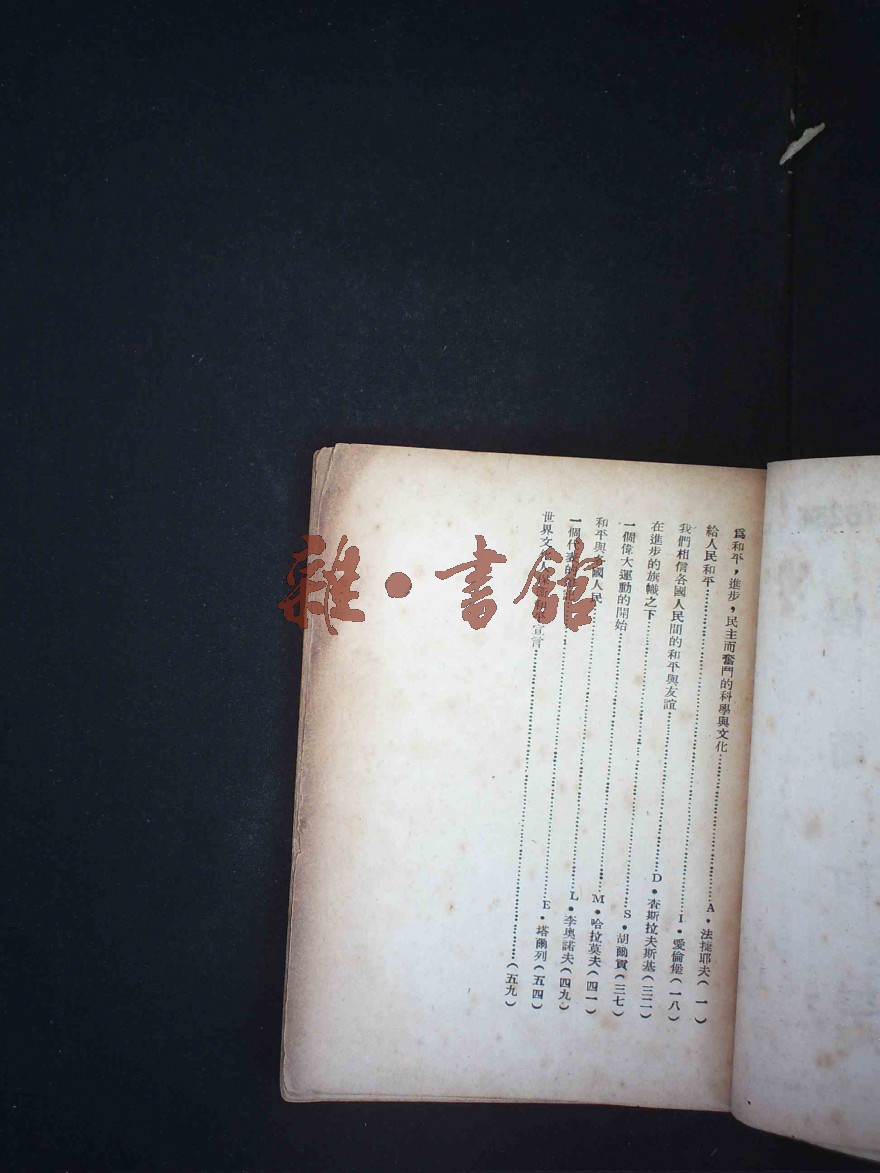 爲和平，進步，民主而奮鬥的科學與文化……A・法捷耶夫（一）
給人民和平……I・愛倫堡（一八）
我們相信各國人民間的和平與友誼……D・查斯拉夫斯基（三二）
在進步的旗幟之下……S・胡爾賓（三七）
一個偉大運動的開始……M・哈拉莫夫（四一）
和平與各國人民……L・李奧諾夫（四九）
一個代表的……E・塔爾列（五四）
世界文化人和平宣言……（五九）
雜・書館